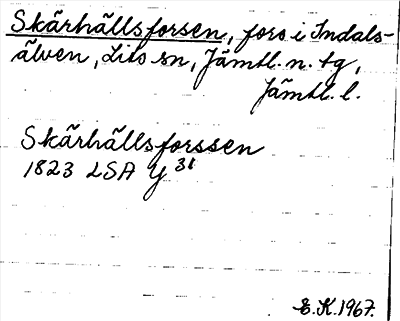 Skärhällsforsen, fors i Indals-
älven, Lits sn, Jämtl. n. tg,
Jämtl. l.
Skärhällsforssen
1823 LSA Y 31
E.K.1967.